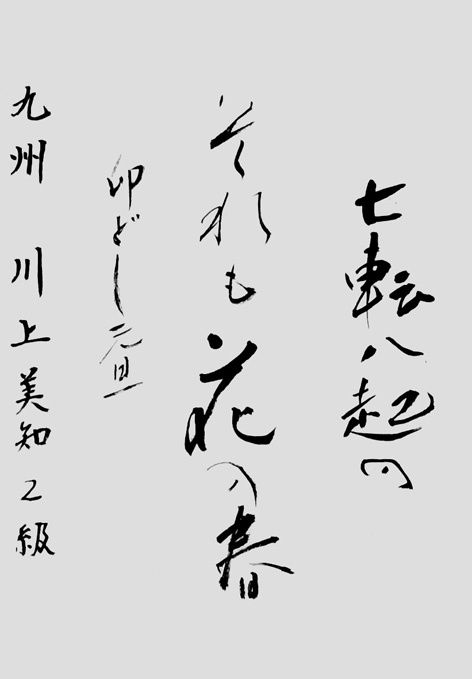 七転八起の
それも花の春
卯どし元旦
九州 川上美知 2級